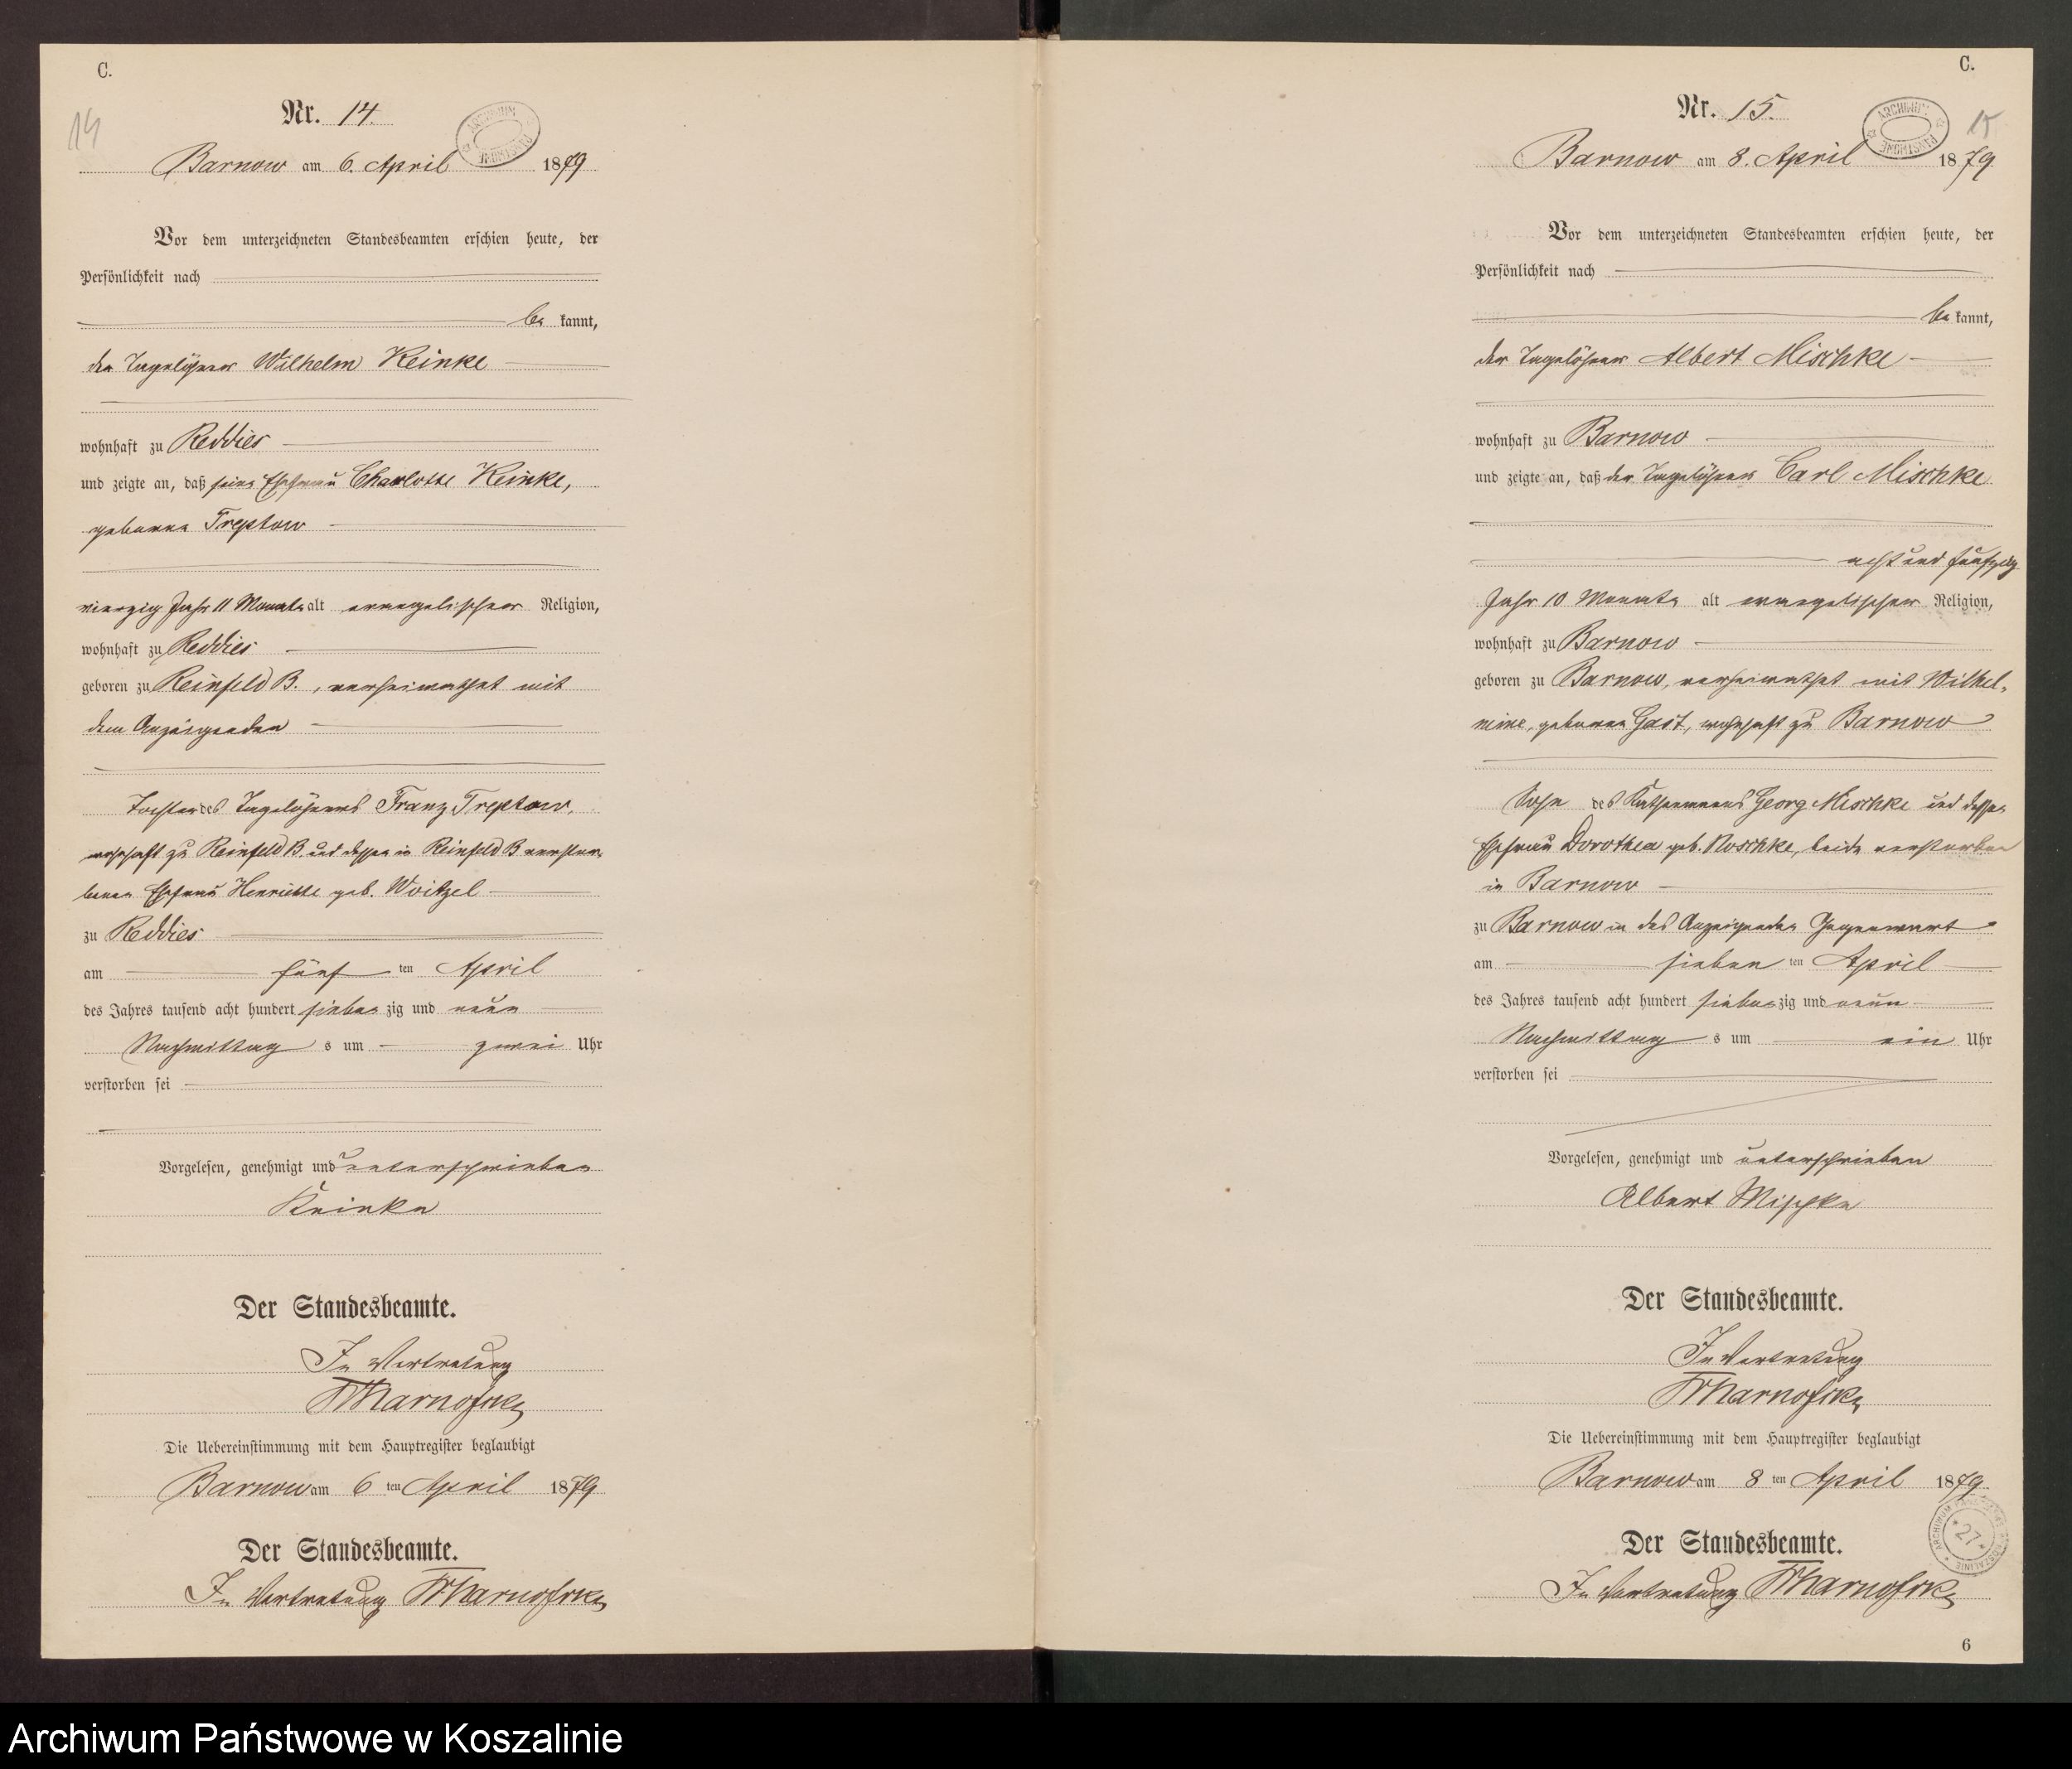 C.
14
Nr. 14.
ARCHIWUM PAŃSTWOWE
Barnow am 6. April 1879
Vor dem unterzeichneten Standesbeamten erschien heute, der
Persönlichkeit nach
be kannt,
der Tagelöhner Wilhelm Keinke
wohnhaft zu Reddies
und zeigte an, daß seine Ehefrau Charlotte Keinke,
geborene Treptow
vierzig Jahr 11 Monate alt evangelischer Religion,
wohnhaft zu Reddies
geboren zu Reinfeld B., verheirathet mit
dem Anzeigenden
Tochter des Tagelöhners Franz Treptow,
wohnhaft zu Reinfeld B. und dessen in Reinfeld B verstor-
benen Ehefrau Henriette geb. Woitzel
zu Reddies
am fünf ten April
des Jahres tausend acht hundert sieben zig und neun
Nachmittag s um zwei Uhr
verstorben sei
Vorgelesen, genehmigt und unterschrieben
Keinke
Der Standesbeamte.
In Vertretung
Die Uebereinstimmung mit dem Hauptregister beglaubigt
Barnow am 6 ten April 1879
Der Standesbeamte.
In Vertretung
C.
15
Nr. 15.
ARCHIWUM PAŃSTWOWE
Barnow am 8. April 1879
Vor dem unterzeichneten Standesbeamten erschien heute, der
Persönlichkeit nach
be kannt,
der Tagelöhner Albert Mischke
wohnhaft zu Barnow
und zeigte an, daß der Tagelöhner Carl Mischke
acht und fünfzig
Jahr 10 Monate alt evangelischer Religion,
wohnhaft zu Barnow
geboren zu Barnow, verheirathet mit Wilhel-
mine, geborene Gast, wohnhaft zu Barnow
Sohn des Kathenmanns Georg Mischke und dessen
Ehefrau Dorothea geb. Noschke, beide verstorben
in Barnow
zu Barnow in des Anzeigenden Gegenwart
am sieben ten April
des Jahres tausend acht hundert sieben zig und neun
Nachmittag s um ein Uhr
verstorben sei
Vorgelesen, genehmigt und unterschrieben
Albert Mischke
Der Standesbeamte.
In Vertretung
Die Uebereinstimmung mit dem Hauptregister beglaubigt
Barnow am 8 ten April 1879
Der Standesbeamte.
In Vertretung
27
6
Archiwum Państwowe w Koszalinie